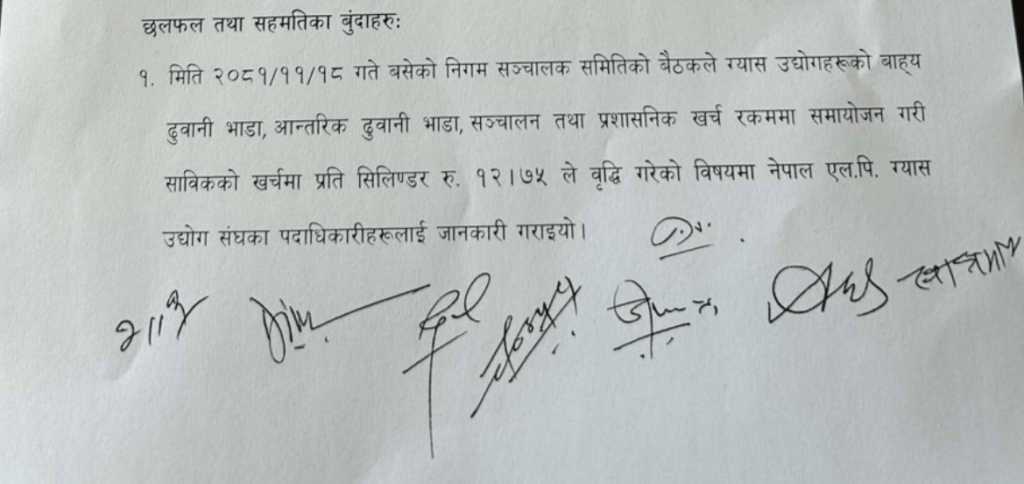 छलफल तथा सहमतिका बुंदाहरु:
१. मिति २०८१/११/१८ गते बसेको निगम सञ्चालक समितिको बैठकले ग्यास उद्योगहरूको बाह्य
ढुवानी भाडा, आन्तरिक ढुवानी भाडा, सञ्चालन तथा प्रशासनिक खर्च रकममा समायोजन गरी
साविकको खर्चमा प्रति सिलिण्डर रु. १२।७५ ले वृद्धि गरेको विषयमा नेपाल एल.पि. ग्यास
उद्योग संघका पदाधिकारीहरूलाई जानकारी गराइयो।